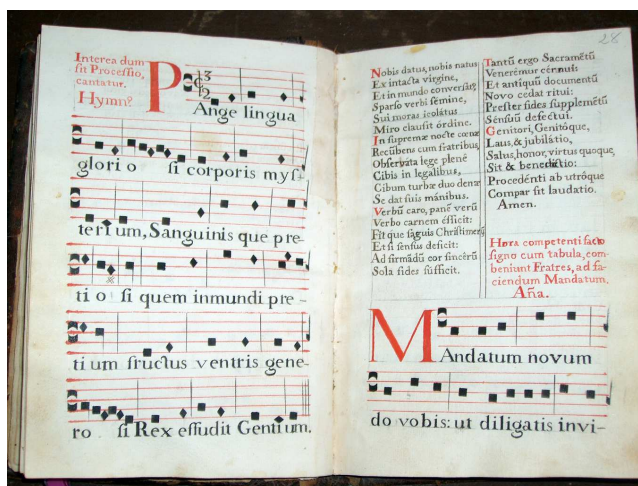 Interea dum
fit Processio,
cantatur.
Hymnꝰ
PAnge lingua
glorio si corporis mys-
terium, Sanguinis que pre-
tio si quem in mundi pre-
tium fructus ventris gene-
ro si Rex effudit Gentium.
28
Nobis datus, nobis natus
Ex intacta virgine,
Et in mundo conversatꝰ
Sparso verbi semine,
Sui moras icolatus
Miro clausit órdine.
In supremæ nocte cœnæ
Recũbens cum fratribus
Observata lege plenè
Cibis in legalibus,
Cibum turbæ duo denæ
Se dat suis mánibus.
Verbũ caro, panē verũ
Verbo carnem éfficit:
Fitque sãguis Christi
Et si sensus deficit:
Ad firmãdũ cor sincerũ
Sola fides sufficit.
Tantũ ergo Sacramẽtũ
Venerémur cérnui:
Et antíquũ documentũ
Novo cedat ritui:
Præstet fides supplemẽtũ
Sénsuũ deféctui.
Genitori, Genitóque,
Laus, & jubilátio,
Salus, honor, virtus quoque,
Sit & benedictio:
Procedénti ab utróque
Compar sit laudatio.
Amen.
Hora competenti facto
signo cum tabula, con-
beniunt Fratres, ad fa-
ciendum Mandatum.
Aña.
MAndatum novum
do vobis: ut diligatis invi-